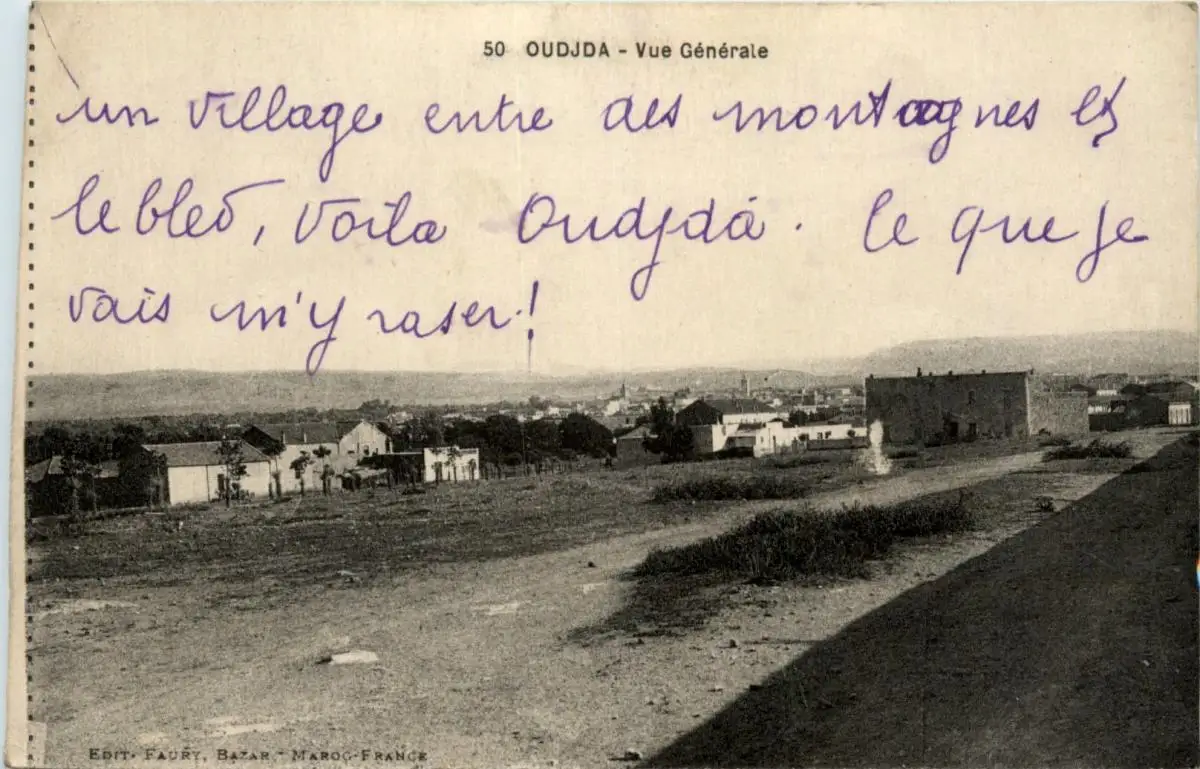 50 OUDJDA - Vue Générale
un village entre des montagnes et
le bled, voila Oudjda. Ce que je
vais m'y raser!
EDIT. FAURY, BAZAR - MAROC-FRANCE